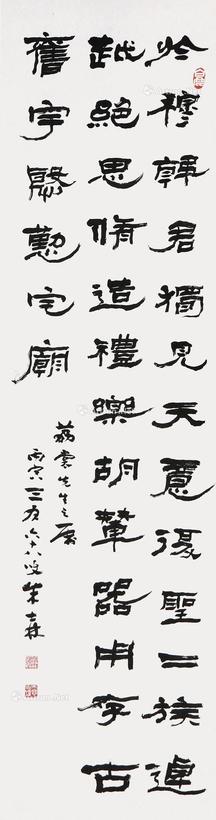 於穆韓君獨見天意復聖二族逴
越絕思脩造禮樂胡輦器用存古
舊宇慇懃宅廟
先生之屬
丙寅三月六十八叟朱